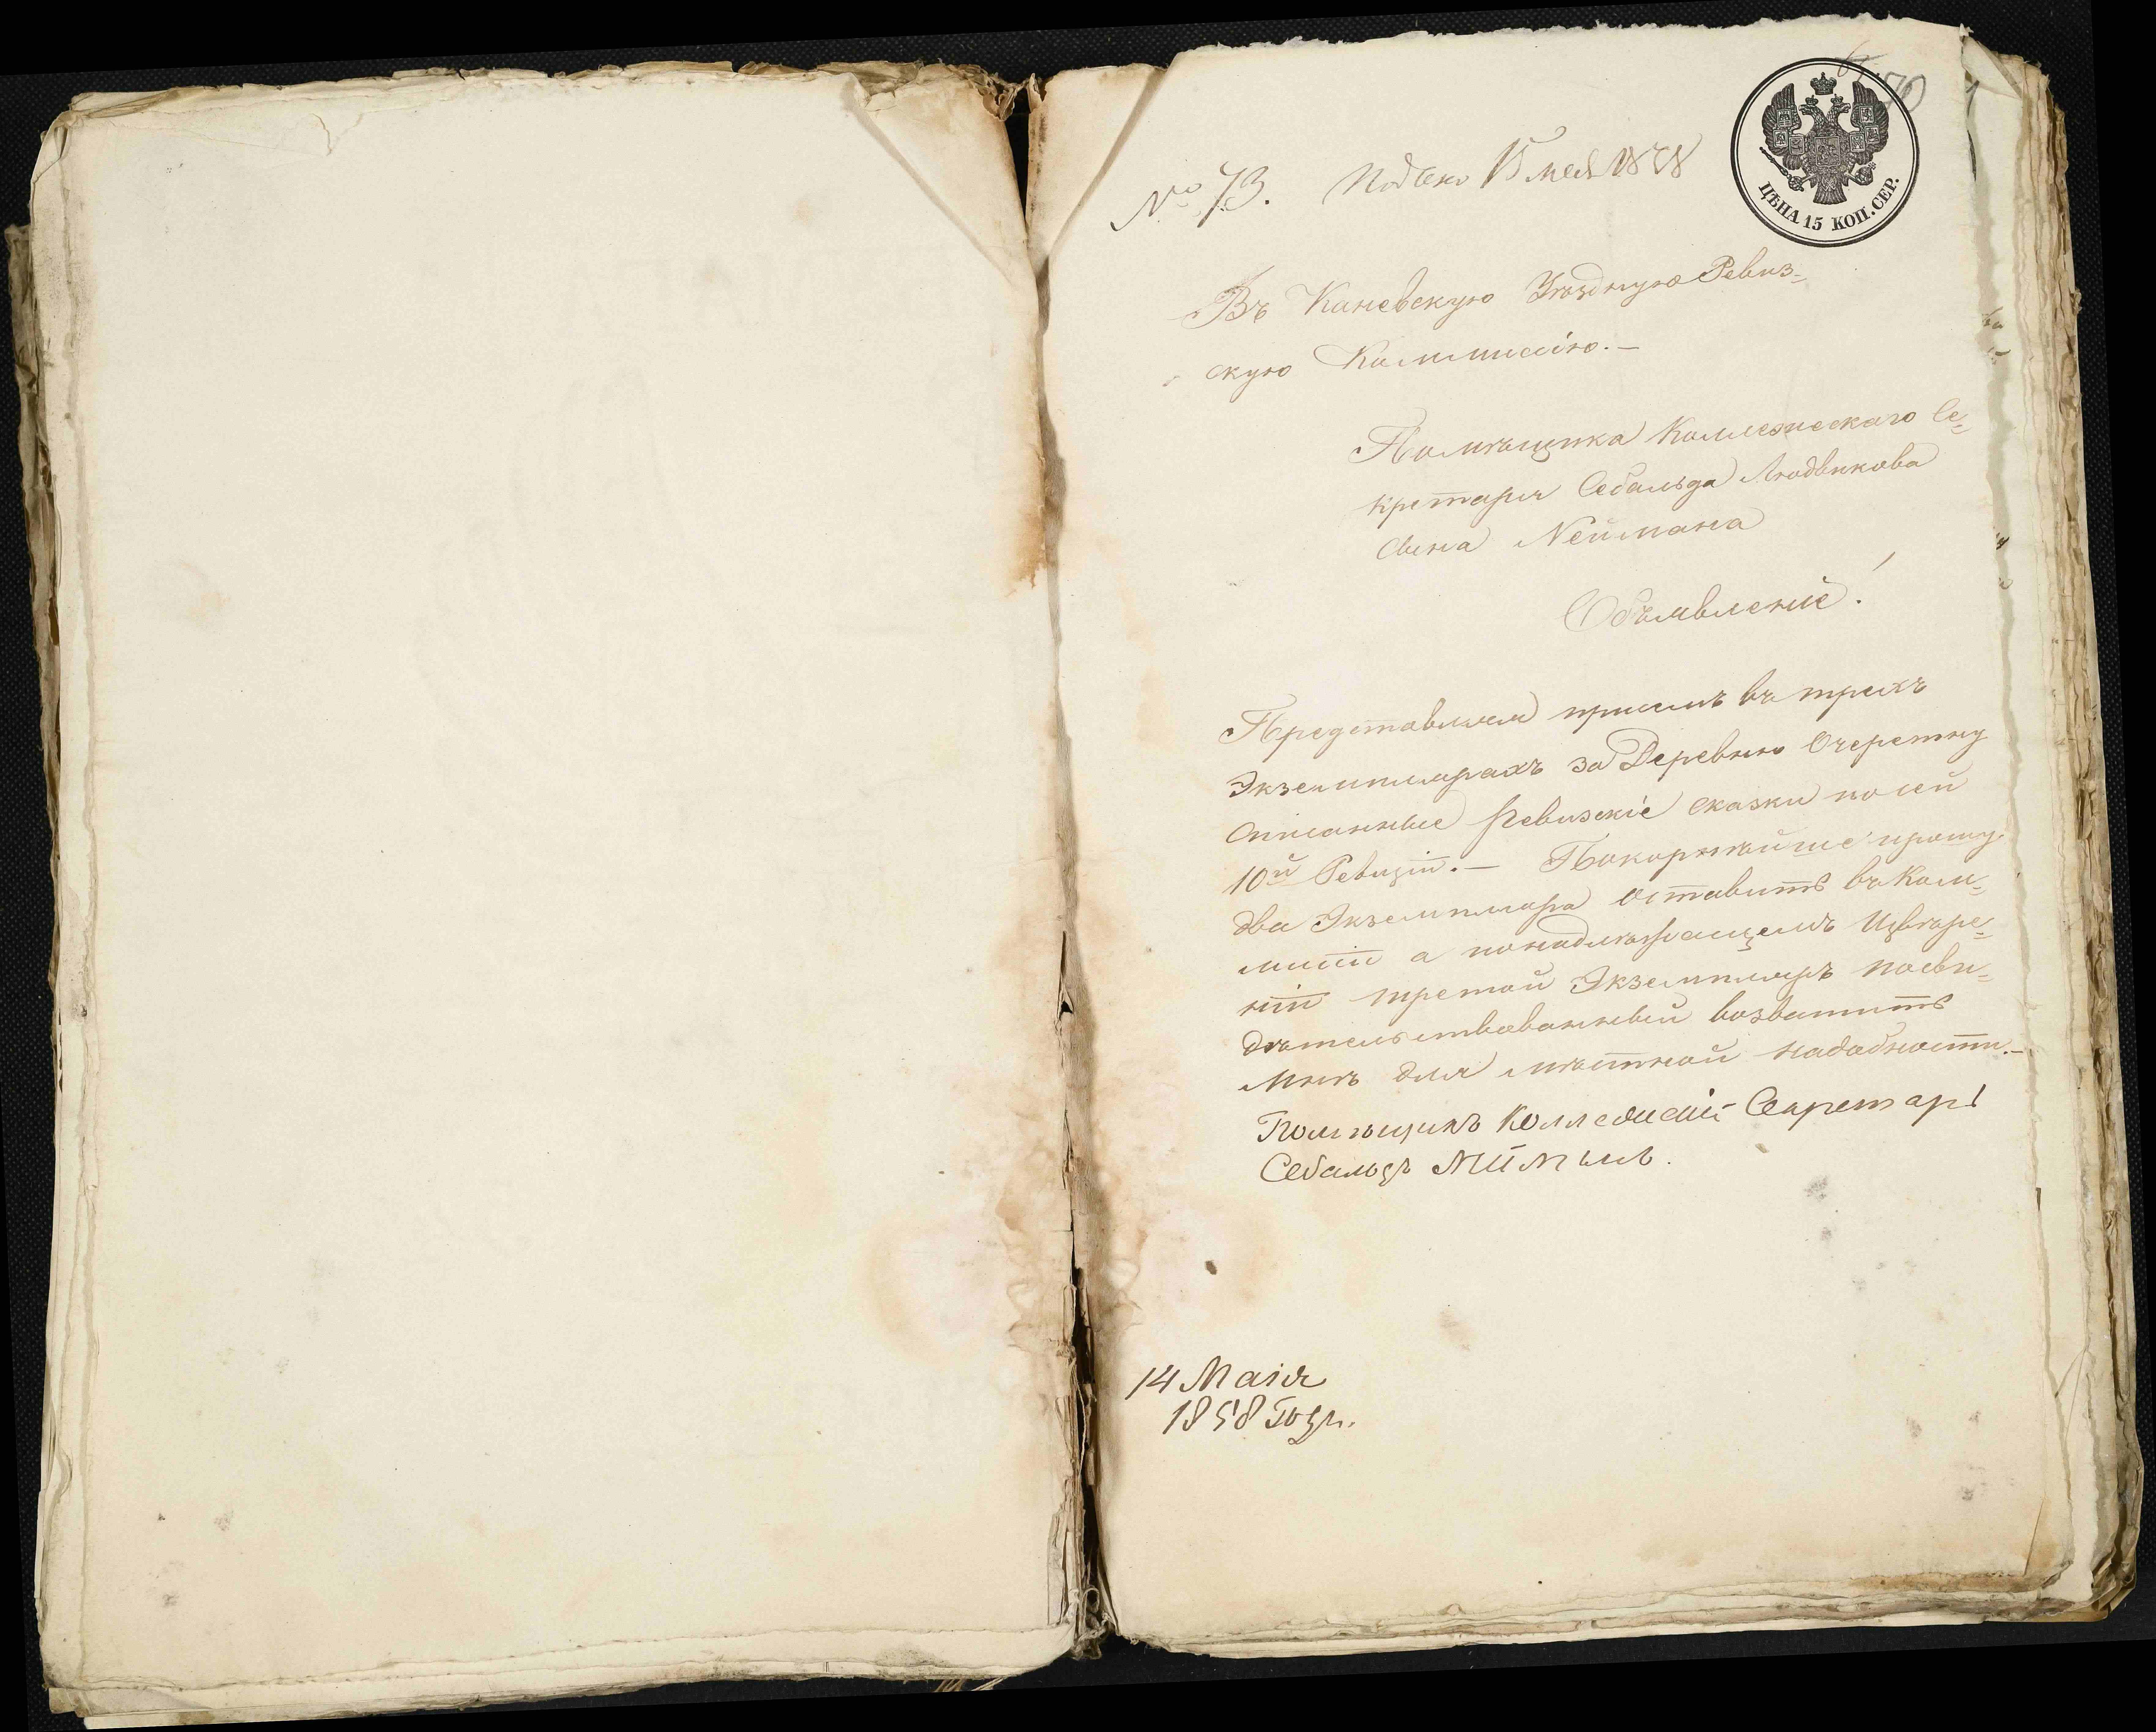 70
ЦѢНА 15 КОП. СЕР.
№ 73. Подано 15 мая 1858
Въ Каневскую Уѣздную Ревиз-
скую Коммисію.-
Помѣщика Коллежскаго Се-
кретаря Себальда Людвикова
Сына Неймана
Объявленіе!
Представляя присемъ въ трехъ
Экземплярахъ за Деревню Очеретну
Списанные Ревизскіе сказки по сей
10й Ревизіи.- Покорнѣйше прошу
два Экземпляра Оставить въ Ком-
мисіи а понадлежащемъ Извѣре-
ніи третой Экземпляръ посви-
дѣтельствованный возватить
мнѣ для мѣстной надобности.-
Помѣщикъ Коллежскій Секретарь
Себальдъ Нейманъ.
14 Маія
1858 Года.